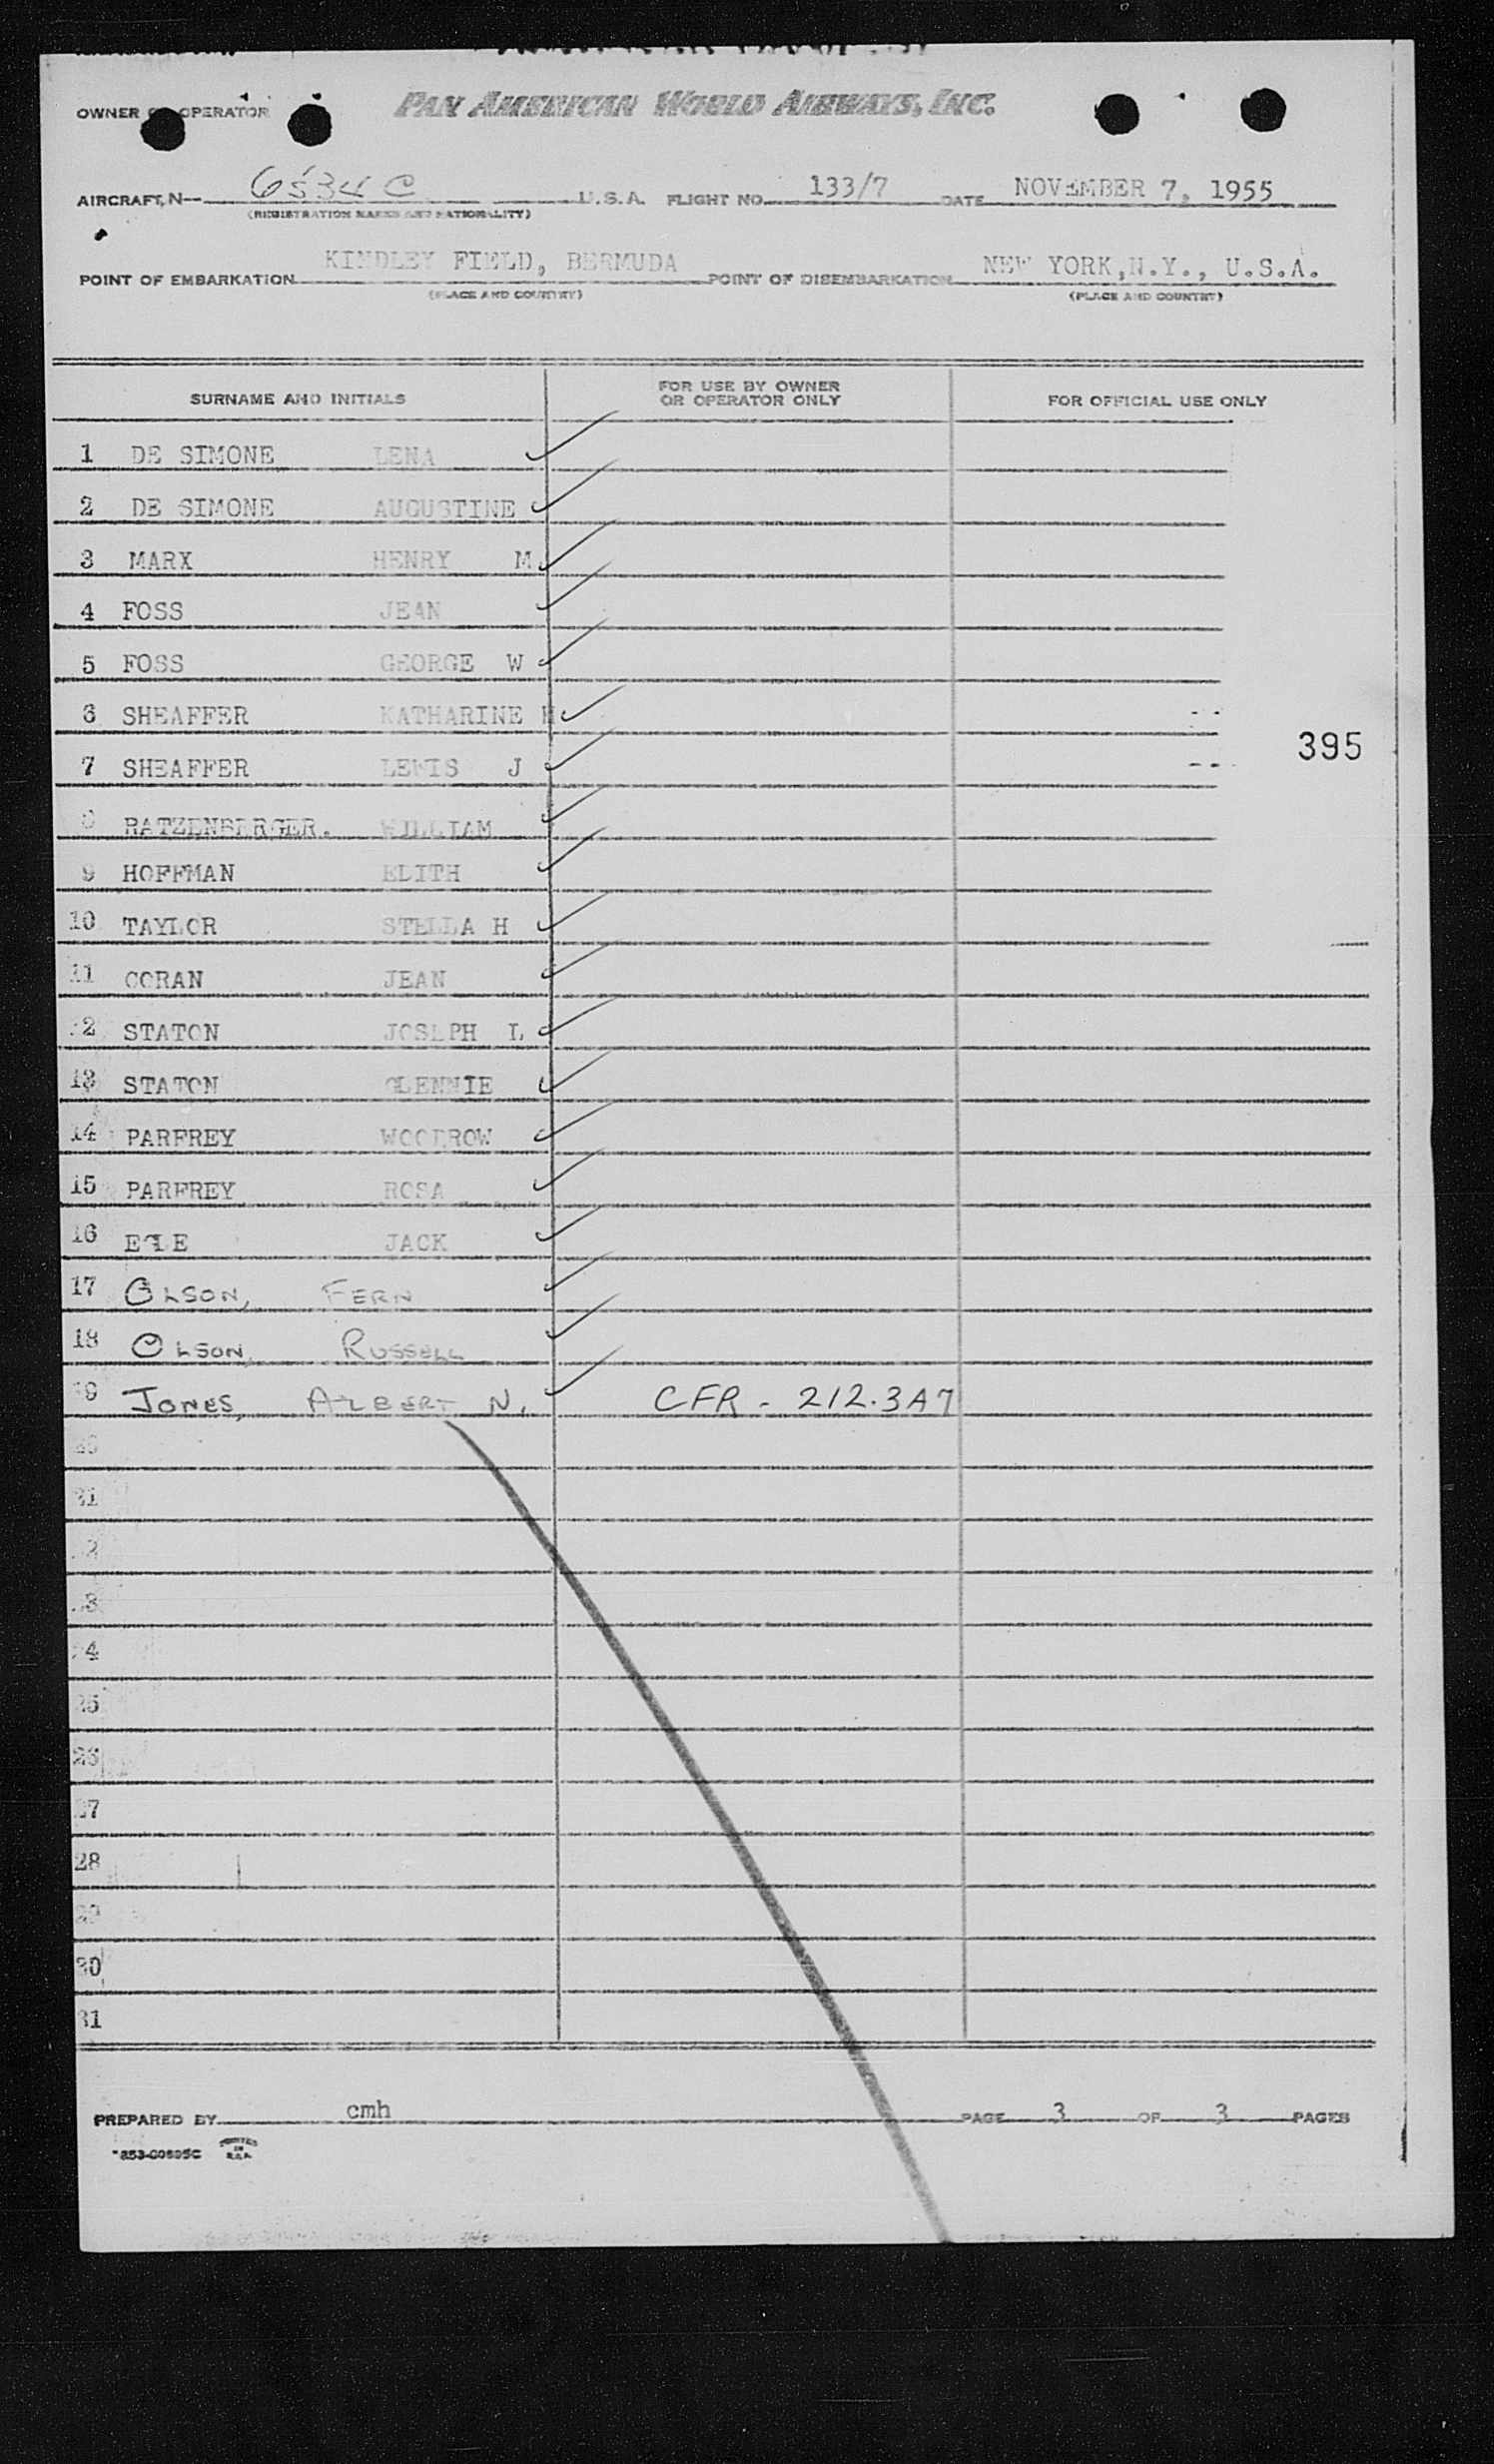 OWNER OPERATOR PAN AMERICAN WORLD AIRWAYS, INC.
AIRCRAFT, N- 6534C U.S.A. FLIGHT NO. 133/7 DATE NOVEMBER 7, 1955
(REGISTRATION MARKS AND NATIONALITY)
POINT OF EMBARKATION KINDLEY FIELD, BERMUDA POINT OF DISEMBARKATION NEW YORK, N.Y., U.S.A.
(PLACE AND COUNTRY) (PLACE AND COUNTRY)
SURNAME AND INITIALS FOR USE BY OWNER OR OPERATOR ONLY FOR OFFICIAL USE ONLY
1 DE SIMONE LENA
2 DE SIMONE AUGUSTINE
3 MARX HENRY M
4 FOSS JEAN
5 FOSS GEORGE W
6 SHEAFFER KATHARINE H
7 SHEAFFER LEWIS J
395
8 RATZENBERGER. WILLIAM
9 HOFFMAN EDITH
10 TAYLOR STELLA H
11 CORAN JEAN
12 STATON JOSEPH L
13 STATON GLENNIE
14 PARFREY WOODROW
15 PARFREY ROSA
16 JACK
17 OLSON, FERN
18 OLSON, RUSSELL
19 JONES, ALBERT N. CFR - 212.3A7
20
21
22
23
24
25
26
27
28
29
30
31
PREPARED BY cmh PAGE 3 OF 3 PAGES
PRINTED IN U.S.A.